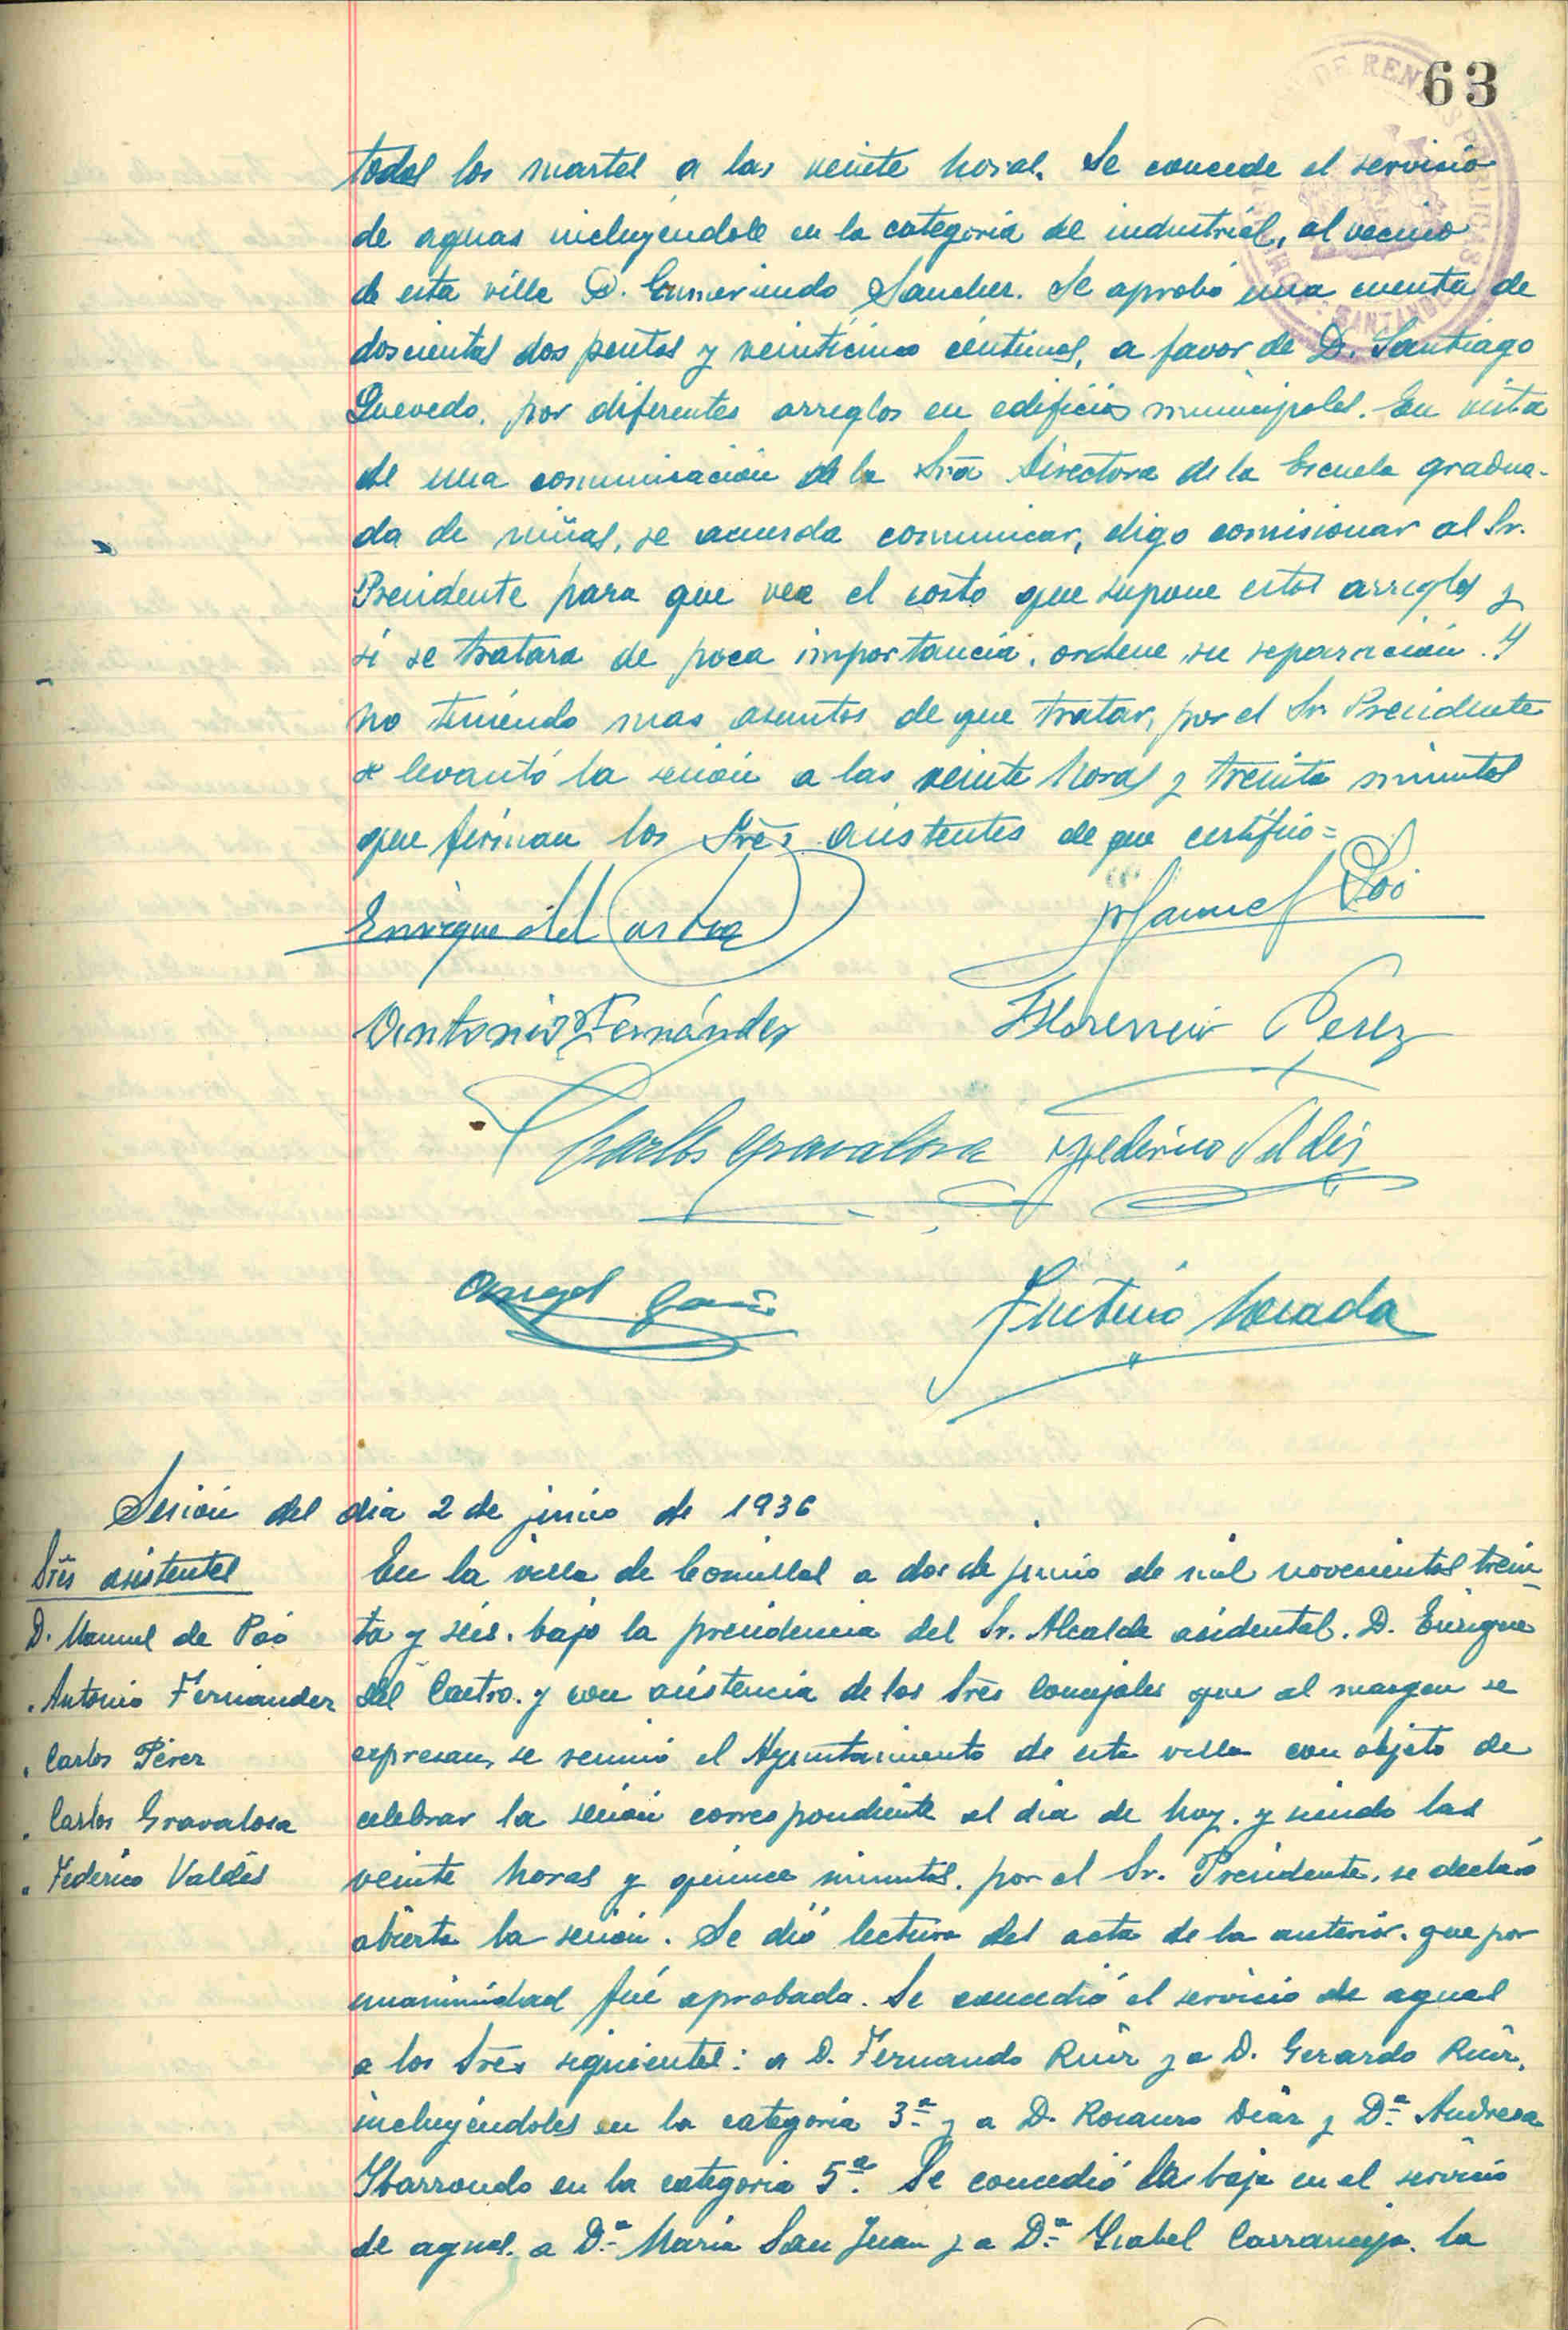 63
todos los martes a las veinte horas. Se concede el servicio
de aguas incluyéndole en la categoria de industrial, al vecino
de esta villa D. Gumersindo Sanchez. Se aprobó una cuenta de
doscientas dos pesetas y veinticinco céntimos, a favor de D. Santiago
Quevedo, por diferentes arreglos en edificios municipales. En vista
de una comunicación de la Srá Directora de la Escuela gradua-
da de niñas, se acuerda comunicar, digo comisionar al Sr.
Presidente para que vea el costo que supone estos arreglos y
si se tratara de poca importancia, ordene su reparación. Y
no teniendo mas asuntos de que tratar, por el Sr. Presidente
se levantó la sesión a las veinte horas y treinta minutos
que firman los Srēs asistentes de que certifico=
Enrique del Castro
Manuel Poó
Antonio Fernández
Florencio Perez
Carlos Gravalosa
Federico Valdés
Angel
Losada
Sesión del dia 2 de junio de 1936
Srēs asistentes
D. Manuel de Poó
. Antonio Fernandez
. Carlos Pérez
. Carlos Gravalosa
. Federico Valdés
En la villa de Comillas a dos de junio de mil novecientos trein-
ta y séis. bajo la presidencia del Sr. Alcalde acidental. D. Enrique
del Castro. y con asistencia de los Srēs Concejales que al margen se
expresan, se reunió el Ayuntamiento de esta villa con objeto de
celebrar la sesión correspondiente al dia de hoy. y siendo las
veinte horas y quince minutos. por el Sr. Presidente. se declaró
abierta la sesión. Se dió lectura del acta de la anterior. que por
unanimidad fué aprobada. Se concedió el servicio de aguas
a los Srēs siguientes: a D. Fernando Ruiz y a D. Gerardo Ruiz,
incluyéndoles en la categoria 3ª y a D. Rosauro Diaz y Dª Andresa
Ybarrondo en la categoria 5ª. Se concedió la baja en el servicio
de aguas. a Dª Maria San Juan y a Dª Ysabel Carranceja. la